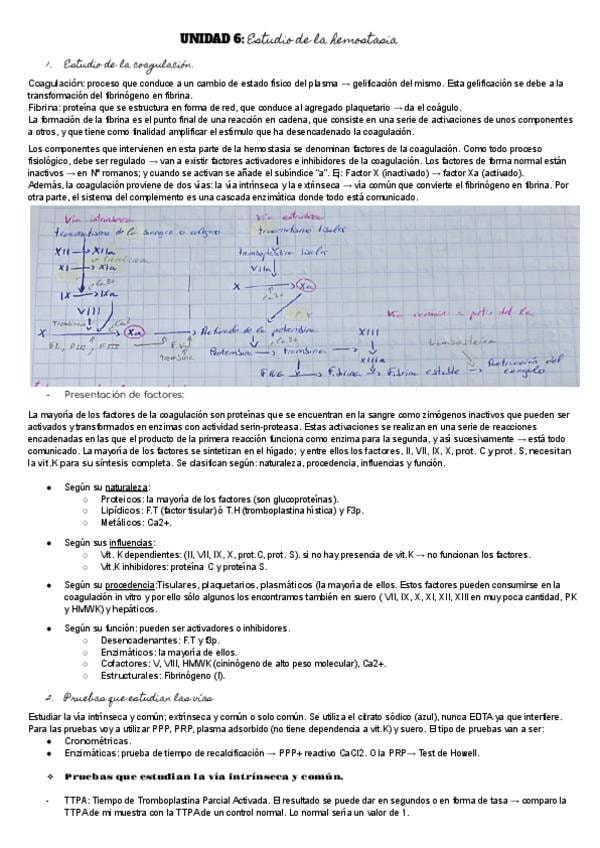 UNIDAD 6: Estudio de la hemostasia
1. Estudio de la coagulación.
Coagulación: proceso que conduce a un cambio de estado físico del plasma → gelificación del mismo. Esta gelificación se debe a la
transformación del fibrinógeno en fibrina.
Fibrina: proteína que se estructura en forma de red, que conduce al agregado plaquetario → da el coágulo.
La formación de la fibrina es el punto final de una reacción en cadena, que consiste en una serie de activaciones de unos componentes
a otros, y que tiene como finalidad amplificar el estímulo que ha desencadenado la coagulación.
Los componentes que intervienen en esta parte de la hemostasia se denominan factores de la coagulación. Como todo proceso
fisiológico, debe ser regulado → van a existir factores activadores e inhibidores de la coagulación. Los factores de forma normal están
inactivos → en Nº romanos; y cuando se activan se añade el subíndice "a". Ej: Factor X (inactivado) → factor Xa (activado).
Además, la coagulación proviene de dos vías: la vía intrínseca y la extrínseca → vía común que convierte el fibrinógeno en fibrina. Por
otra parte, el sistema del complemento es una cascada enzimática donde todo está comunicado.
Vía intrínseca Vía extrínseca
traumatismo de la sangre o colágeno traumatismo tisular
XII → XIIa tromboplastina tisular
XI → XIa VIIa
Ca2+ X → Xa
IX → IXa Ca2+
VIII Vía común a partir del Xa
Trombina Ca2
X → Xa → Activador de la protrombina XIII
FV Ca2+
trombina Protrombina → trombina XIIIa Retracción del coágulo
→ Fibrina → Fibrina estable →
- Presentación de factores:
La mayoría de los factores de la coagulación son proteínas que se encuentran en la sangre como zimógenos inactivos que pueden ser
activados y transformados en enzimas con actividad serin-proteasa. Estas activaciones se realizan en una serie de reacciones
encadenadas en las que el producto de la primera reacción funciona como enzima para la segunda, y así sucesivamente → está todo
comunicado. La mayoría de los factores se sintetizan en el hígado; y entre ellos los factores, II, VII, IX, X, prot. C y prot. S, necesitan
la vit.K para su síntesis completa. Se clasifican según: naturaleza, procedencia, influencias y función.
● Según su naturaleza:
○ Proteicos: la mayoría de los factores (son glucoproteínas).
○ Lipídicos: F.T (factor tisular) ó T.H (tromboplastina hística) y F3p.
○ Metálicos: Ca2+.
● Según sus influencias:
○ Vit. K dependientes: (II, VII, IX, X, prot.C, prot. S), si no hay presencia de vit.K → no funcionan los factores.
○ Vit.K inhibidores: proteína C y proteína S.
● Según su procedencia:Tisulares, plaquetarios, plasmáticos (la mayoría de ellos. Estos factores pueden consumirse en la
coagulación in vitro y por ello sólo algunos los encontramos también en suero ( VII, IX, X, XI, XII, XIII en muy poca cantidad, PK
y HMWK) y hepáticos.
● Según su función: pueden ser activadores o inhibidores.
○ Desencadenantes: F.T y f3p.
○ Enzimáticos: la mayoría de ellos.
○ Cofactores: V, VIII, HMWK (cininógeno de alto peso molecular), Ca2+.
○ Estructurales: Fibrinógeno (I).
2. Pruebas que estudian las vías
Estudiar la vía intrínseca y común; extrínseca y común o solo común. Se utiliza el citrato sódico (azul), nunca EDTA ya que interfiere.
Para las pruebas voy a utilizar PPP, PRP, plasma adsorbido (no tiene dependencia a vit.K) y suero. El tipo de pruebas van a ser:
● Cronométricas.
● Enzimáticas: prueba de tiempo de recalcificación → PPP+ reactivo CaCl2. O la PRP→ Test de Howell.
❖ Pruebas que estudian la vía intrínseca y común.
- TTPA: Tiempo de Tromboplastina Parcial Activada. El resultado se puede dar en segundos o en forma de tasa → comparo la
TTPA de mi muestra con la TTPA de un control normal. Lo normal sería un valor de 1.